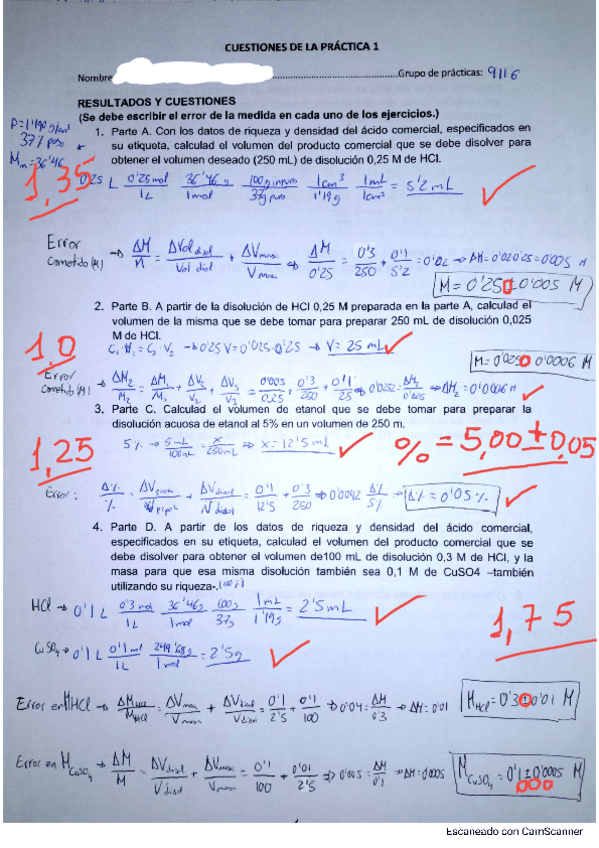 CUESTIONES DE LA PRÁCTICA 1
Nombre...............................Grupo de prácticas: 9116
ρ=1'190 g/cm³
37% peso
Mm=36'46
RESULTADOS Y CUESTIONES
(Se debe escribir el error de la medida en cada uno de los ejercicios.)
1. Parte A. Con los datos de riqueza y densidad del ácido comercial, especificados en
su etiqueta, calculad el volumen del producto comercial que se debe disolver para
obtener el volumen deseado (250 mL) de disolución 0,25 M de HCl.
1,35
0'25 L 0'25mol/1L 36'46g/1mol 100g impuro/37g puro 1cm³/1'19g 1mL/1cm³ = 5'2 mL
Error cometido (M) → ΔM/M = ΔVol disol/Vol disol + ΔV/V ⇒ ΔM/0'25 = 0'3/250 + 0'1/5'2 = 0'02 → ΔM=0'02·0'25=0'005 M
M=0'250±0'005 M
2. Parte B. A partir de la disolución de HCl 0,25 M preparada en la parte A, calculad el
volumen de la misma que se debe tomar para preparar 250 mL de disolución 0,025
M de HCl.
1,0
C₁·V₁ = C₂·V₂ → 0'25 V = 0'025·0'25 → V= 25 mL
M=0'0250 0'0006 M
Error cometido (M) → ΔM₂/M₂ = ΔM₁/M₁ + ΔV₂/V₂ + ΔV₃/V₃ = 0'005/0,25 + 0'3/250 + 0'1/25 ⇒ ΔM₂=0'0006 M
3. Parte C. Calculad el volumen de etanol que se debe tomar para preparar la
disolución acuosa de etanol al 5% en un volumen de 250 m.
1,25
5% → 5mL/100mL = x/250mL → x= 12'5 mL
% = 5,00 ± 0,05
Error: Δ%/% = ΔV/V + ΔV disol/V disol = 0'1/12'5 + 0'3/250 ⇒ 0'0092 = Δ%/5% → Δ% = 0'05%
4. Parte D. A partir de los datos de riqueza y densidad del ácido comercial,
especificados en su etiqueta, calculad el volumen del producto comercial que se
debe disolver para obtener el volumen de100 mL de disolución 0,3 M de HCl, y la
masa para que esa misma disolución también sea 0,1 M de CuSO4 –también
utilizando su riqueza-.
HCl → 0'1 L 0'3 mol/1L 36'46g/1mol 100g/37g 1mL/1'19g = 2'5mL
1,75
CuSO₄ → 0'1 L 0'1 mol/1L 249'68g/1mol = 2'5g
Error en M HCl → ΔM HCl/M HCl = ΔV/V + ΔV disol/V disol = 0'1/2'5 + 0'1/100 ⇒ 0'04 = ΔM/0'3 → ΔM=0'01
M HCl = 0'3 0'01 M
Error en M CuSO₄ → ΔM/M = ΔV disol/V disol + ΔV/V = 0'1/100 + 0'01/2'5 ⇒ 0'005 = ΔM/0'1 → ΔM=0'0005
M CuSO₄ = 0'1 ± 0'0005 M
Escaneado con CamScanner